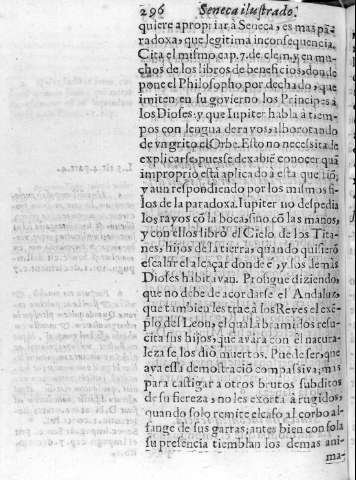 296 Seneca ilustrado.
quiere apropriar à Seneca, es mas pa-
radoxa, que legitima inconsequencia.
Cita el mismo cap. 7. de clem. y en mu-
chos de los libros de beneficios, donde
pone el Philosopho por dechado, que
imiten en su govierno los Principes à
los Dioses: y que Iupiter habla à tiem-
pos con lengua de rayos, alborotando
de vn grito el Orbe. Esto no necesita de
explicarse, pues se dexa biẽ conocer quã
improprio està aplicado à esta questiõ;
y aun respondiendo por los mismos fi-
los de la paradoxa. Iupiter no despedia
los rayos cõ la boca, sino cõ las manos,
y con ellos librò el Cielo de los Tita-
nes, hijos de la tierra, quando quisierõ
escalar el alcaçar donde èl, y los demàs
Dioses habitavan. Prosigue diziendo,
que no debe de acordarse el Andaluz,
que tambien les trae à los Reyes el exẽ-
plo del Leon, el qual à bramidos resu-
cita sus hijos, que avara con èl natura-
leza se los diò muertos. Puede ser, que
aya esta demostraciõ compasiva; mas
para castigar à otros brutos subditos
de su fiereza, no les exorta à rugidos,
quando solo remite el caso al corbo al-
fange de sus garras; antes bien con sola
su presencia tiemblan los demas ani-
ma-